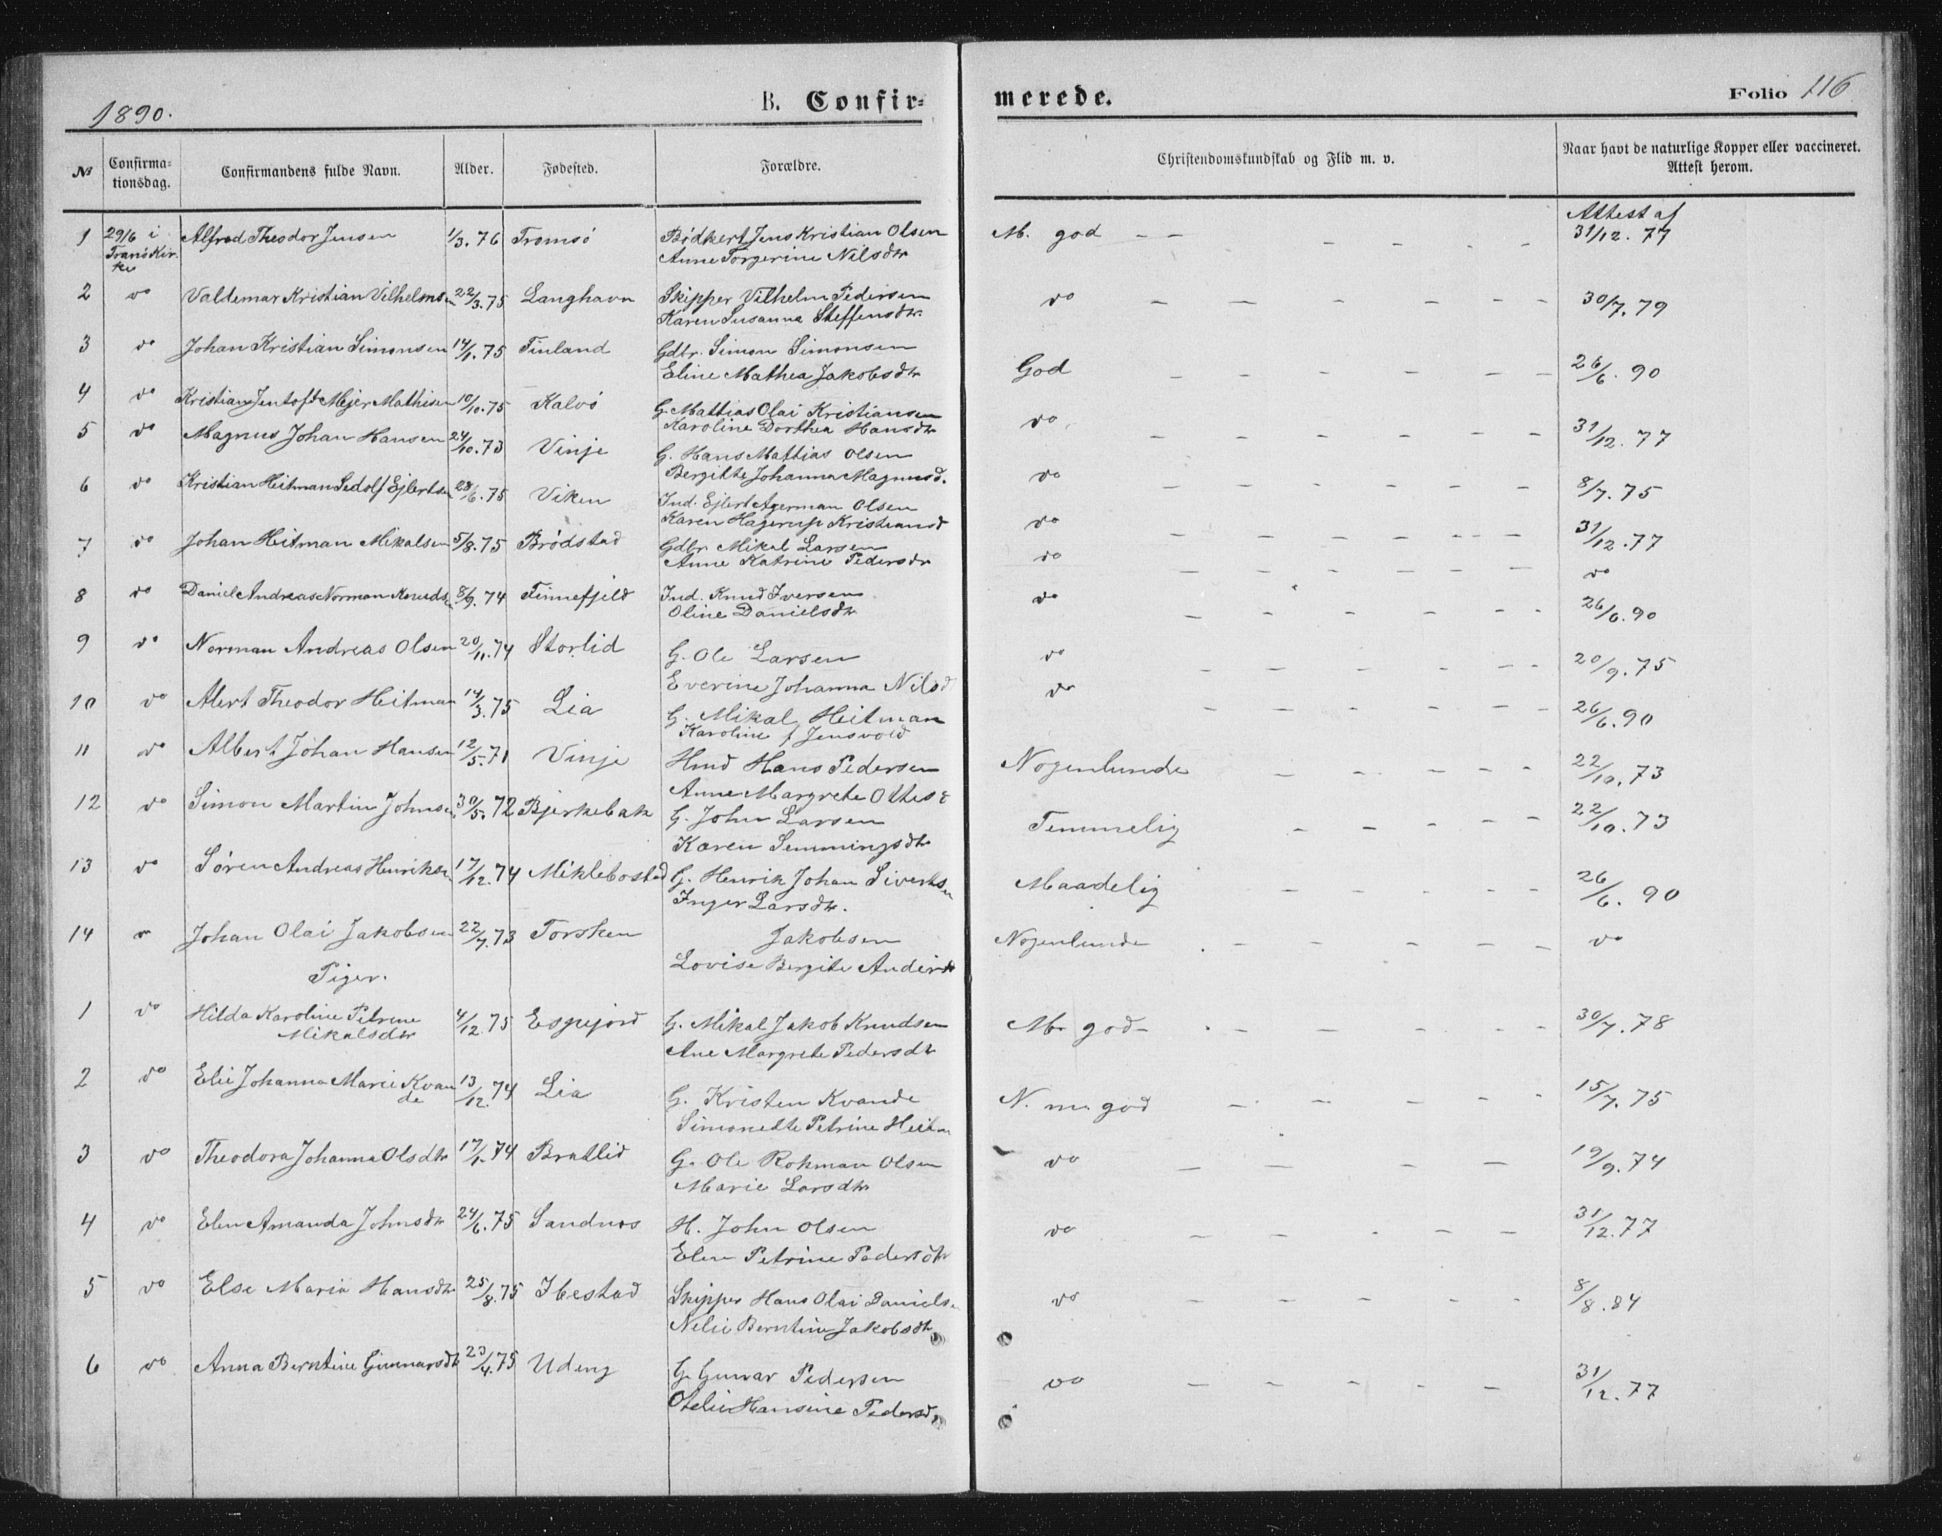 1890. B. Confir= merede. Folio 116
№ Confirma- tionsdag. Confirmandens fulde Navn. Alder. Fødested. Forældre. Christendomskundskab og Flid m. v. Naar havt de naturlige Kopper eller vaccineret. Attest herom.
1 29/6 i Tranö Kirke Alfred Theodor Jensen 1/3. 76 Tromsö Bödker Jens Kristian Olsen M. god - - - - - - Attest af 31/12. 77
Anne Torgerine Nilsdtr
2 do Valdemar Kristian Vilhelmsen 22/3. 75 Langhavn Skipper Vilhelm Pedersen do - - - - - - 30/7. 79
Karen Susanna Steffensdtr.
3 do Johan Kristian Simonsen 14/1. 75 Finland Gdbr. Simon Simonsen God - - - - - - 26/6. 90
Eline Mathea Jakobsdtr
4 do Kristian Jentoft Mejer Mathisen 10/10. 75 Kalvö G. Mattias Olai Kristiansen do - - - - - - 31/12. 77
Karoline Dorthea Hansdtr
5 do Magnus Johan Hansen 24/10. 73 Vinje G. Hans Mattias Olsen do - - - - - - 8/7. 75
Bergitte Johanna Magnusd.
6 do Kristian Heitman Sedolf Ejlertsen 28/6. 75 Viken Ind. Ejlert Agerman Olsen do - - - - - - 31/12. 77
Karen Hagerup Kristiansd
7 do Johan Heitman Mikalsen 5/8. 75 Brödstad Gdbr Mikal Larsen do - - - - - - do
Anne Katrine Pedersdtr
8 do Daniel Andreas Norman Knudsen 8/9. 74 Finnefjeld Ind. Knud Iversen do - - - - - - 26/6. 90
Oline Danielsdtr
9 do Norman Andreas Olsen 20/11. 74 Storlid G. Ole Larsen do - - - - - - 20/9. 75
Everine Johanna Nilsd
10 do Alert Theodor Heitman 14/3. 75 Lia G. Mikal Heitman do - - - - - - 26/6. 90
Karoline f Jensvold
11 do Albert Johan Hansen 12/5. 71 Vinje Hmd Hans Pedersen Nogenlunde - - - - - 22/10. 73
Anne Margrete Ottesd
12 do Simon Martin Johnsen 30/5. 72 Bjerkebak G. John Larsen Temmelig - - - - - 22/10. 73
Karen Semmingsdtr
13 do Sören Andreas Henriksen 17/12. 74 Miklebostad G. Henrik Johan Sivertsen Maadelig - - - - - 26/6. 90
Inger Larsdtr.
14 Johan Olai Jakobsen 22/7. 73 Torsken Jakobsen Nogenlunde - - - - - do
Lovise Bergite Andersdtr
Piger.
1 do Hilda Karoline Petrine Mikalsdtr 4/12. 75 Espejord G. Mikal Jakob Knudsen M. god - - - - - - 30/7. 78
Ane Margrete Pedersdtr
2 do Elie Johanna Marie Kvande 13/12. 74 Lia G. Kristen Kvande N. m. god - - - - - 15/7. 75
Simonette Petrine Heitm
3 do Theodora Johanna Olsdtr 17/1. 74 Bratlid G. Ole Rohman Olsen do - - - - - 19/9. 74
Marie Larsdtr
4 do Elen Amanda Johnsdtr 24/6. 75 Sandnes H. John Olsen do - - - - - 31/12. 77
Elen Petrine Pedersdtr
5 do Else Maria Hansdtr 25/8. 75 Ibestad Skipper Hans Olai Danielsen do - - - - - 8/8. 84
Nelie Berntine Jakobsdtr
6 do Anna Berntine Gunnarsdtr 23/4. 75 Udeng G. Gunnar Pedersen do - - - - - 31/12. 77
Otelie Hansine Pedersd.